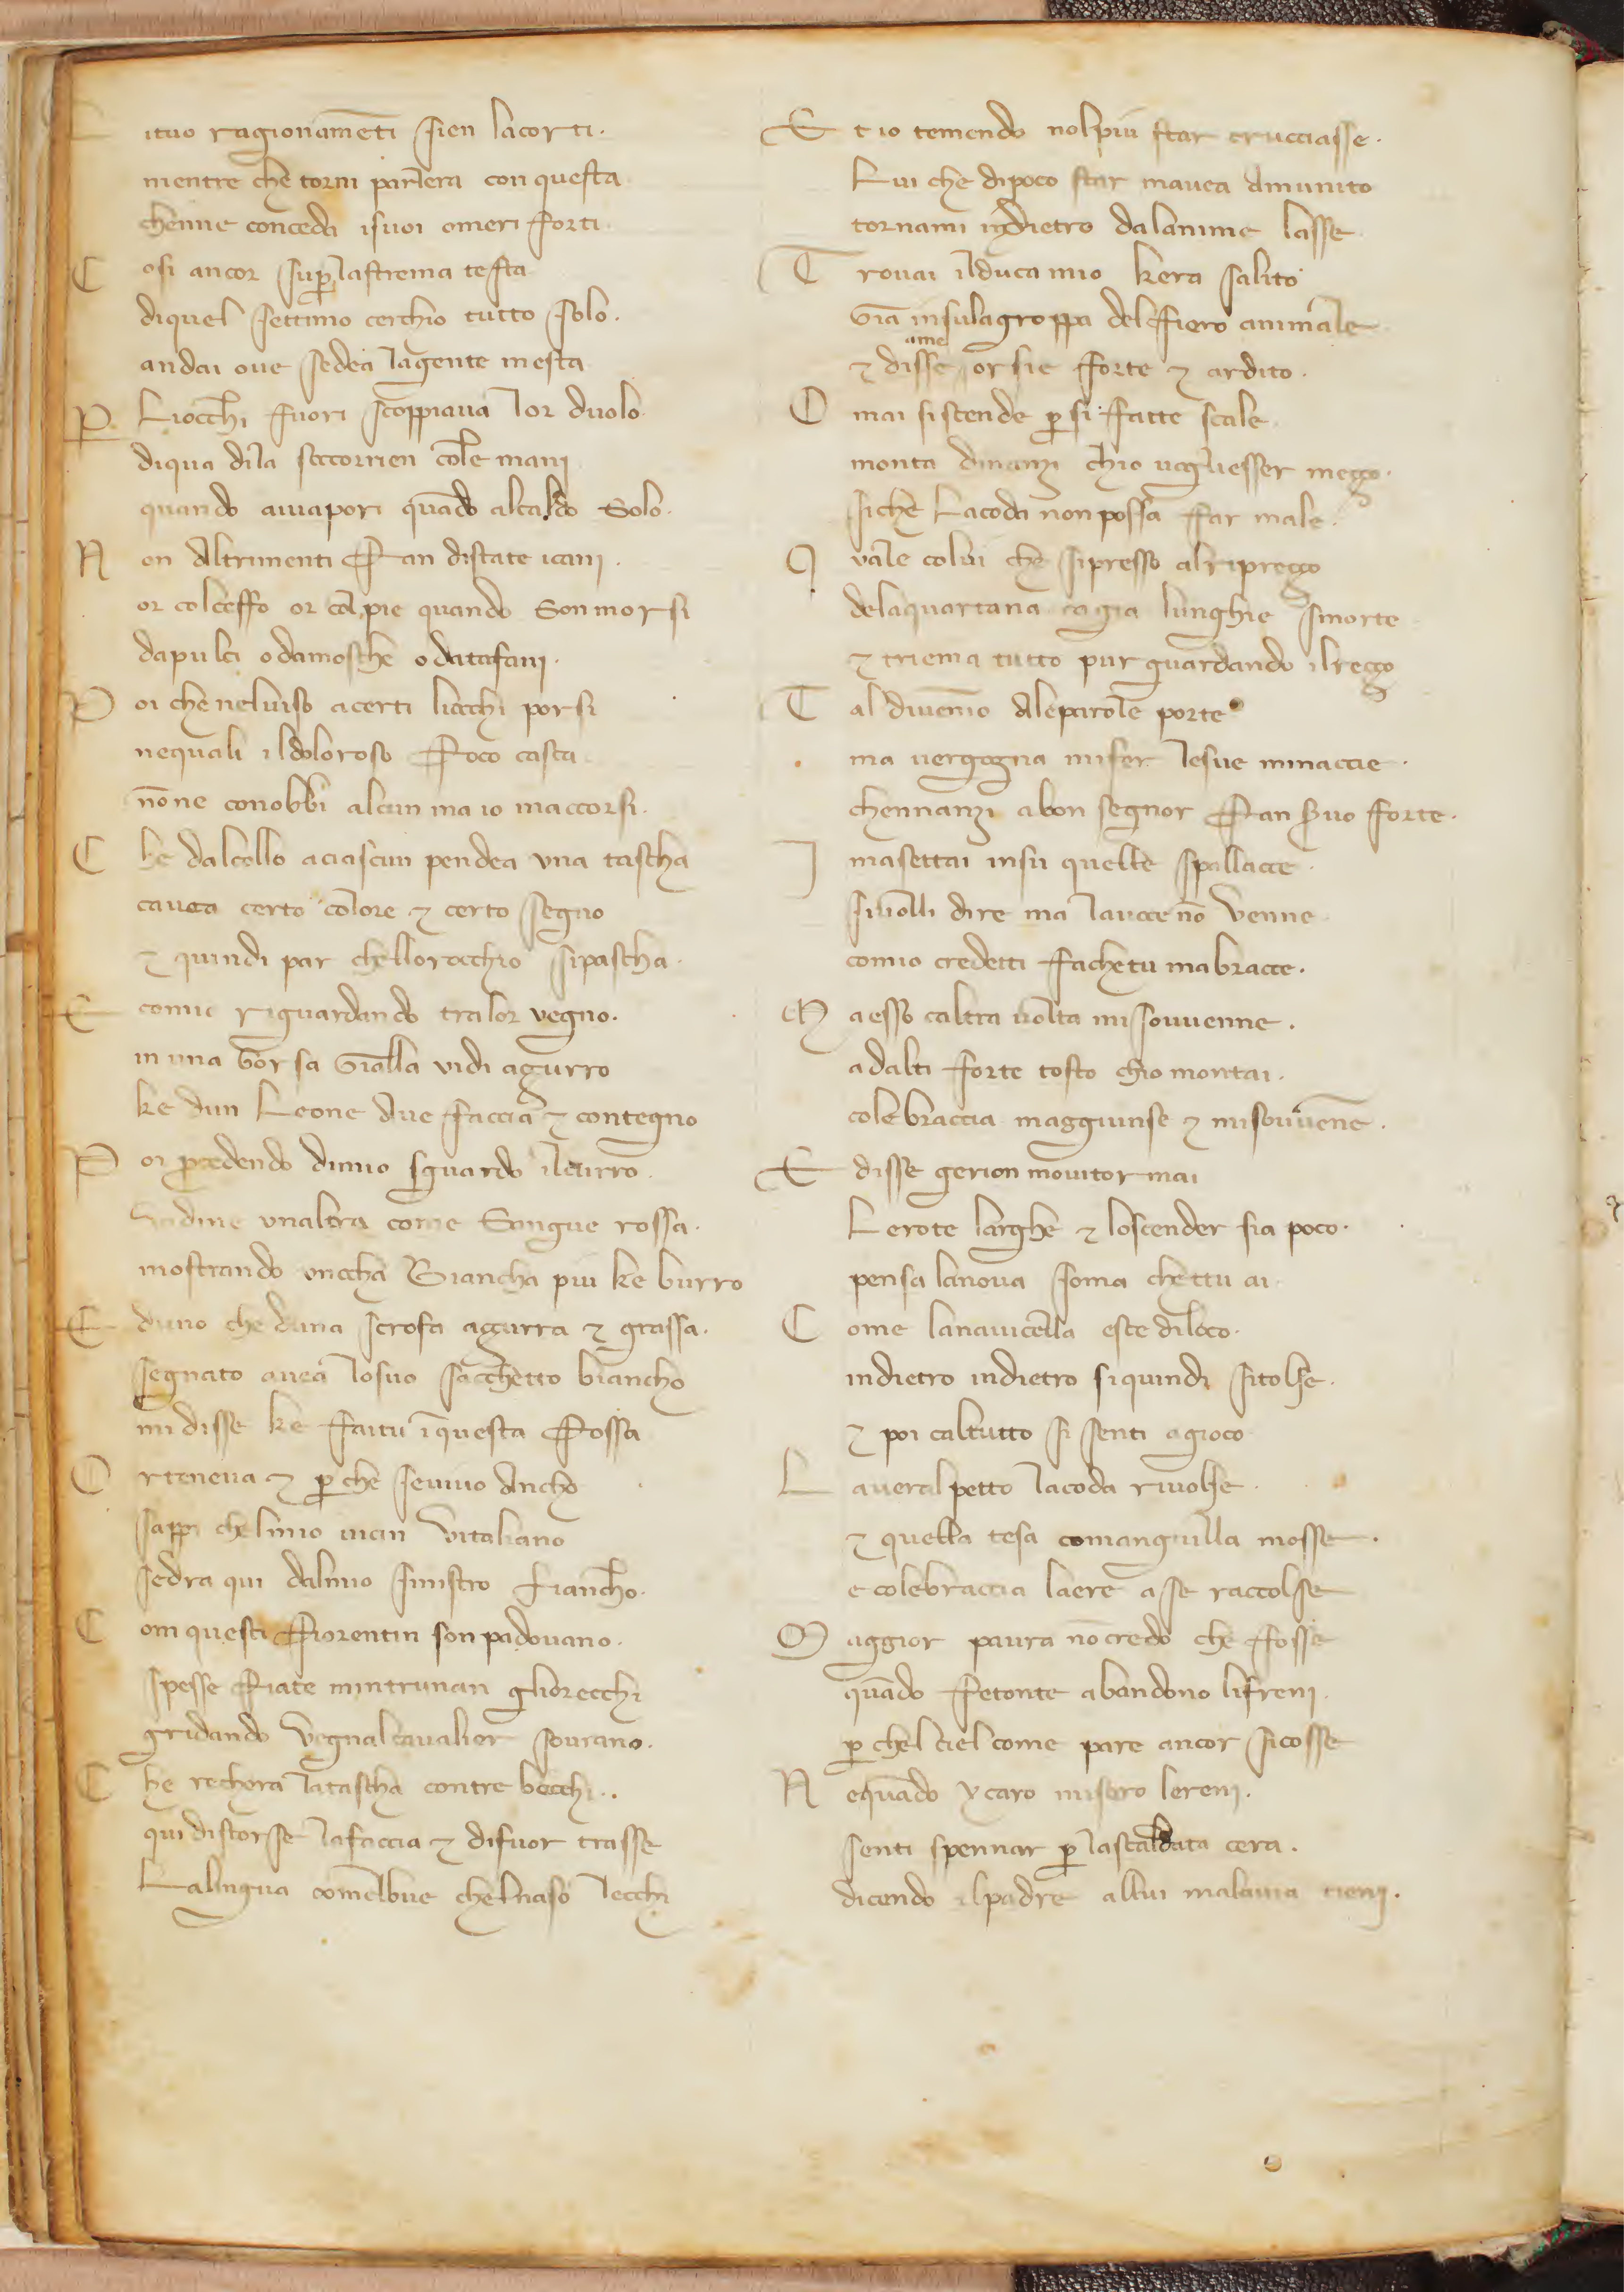 L ituo ragionamēti sien lacorti.
mentre che torni parlera con questa
chenne conceda isuoi omeri forti.
C osi ancor sup̲ lastrema testa
diquel settimo cerchio tutto solo.
andai oue sedea lagente mesta
P̲ Liocchi fuori scoppiaua lor duolo.
diqua dila soccorrien cole mani
quando auapori quādo alcaldo Solo.
N on Altrimenti Fan distate icani.
or colceffo or col pie quando Son morsi
dapulci odamosche odatafani.
P oi che neluiso acerti liocchi porsi
nequali ildoloroso Foco casca
nōne conobbi alcun ma io maccorsi.
C he dalcollo aciascun pendea vna tascha
cauea certo colore ⁊ certo segno
⁊ quindi par chellorocchio sipascha.
E comio riguardando tralor vegno.
in una borsa Gialla vidi açurro
ke dun Leone Aue faccia ⁊ contegno
P oi p̲cedendo dimio sguardo ilcurro.
Vidine vnaltra come Sangue rossa.
mostrando vnocha Biancha piu ke burro
E duno che duna scrofa açurra ⁊ grassa.
segnato auea losuo sacchetto biancho
mi disse ke faitu ī questa Fossa
O rteneua ⁊ p̲che seuiuo Ancho
sappi chelmio uicin Vitaliano
sedra qui dalmio sinistro fiancho.
C om questi Fiorentin son padouano.
spesse Fiate mintrunan gliorecchi
gridando Vegnalcaualier sourano.
C he rechera latascha contre becchi..
qui distorse lafaccia ⁊ difuor trasse
Lalingua comelbue chelnaso lecchi
E t io temendo nolpiu star crucciasse.
Lui che dipoco star mauea Amunito
tornami indietro dalanime lasse
T rouai ilduca mio kera salito
Gia insulagroppa del fiero animale
ame
⁊ disse or sie forte ⁊ ardito.
O mai siscende p̲ si fatte scale
monta dinanzi chio uogliesser meço.
siche Lacoda non possa far male.
Q uale colui che sipresso alripreço
delaquartana cagia lunghie smorte
⁊ triema tutto pur guardando ilreço
T al diuēnio Aleparole porte
ma uergogna mifer lesue minaccie.
chennanzi abon segnor Fan s̲uo forte.
I masettai insu quelle spallacce.
siuolli dire ma lauoce nō Venne
comio credetti fachetu mabracce.
M aesso caltra uolta misouuenne.
adalti forte tosto chio montai.
colebraccia maggiunse ⁊ misouuēne.
E disse gerion mouitormai
Lerote larghe ⁊ loscender sia poco.
pensa lanoua soma chettu ai
C ome lanauicella esce diloco.
indietro indietro siquindi sitolse.
⁊ poi caltutto si senti agioco
L aueralpetto lacoda riuolse
⁊ quella tesa comanguilla mosse.
e colebraccia laere asse raccolse
M aggior paura nō credo che ffosse
quādo fetonte abandono lifreni.
p̲ chel ciel come pare ancor sicosse
N equādo ycaro misero lereni.
senti spennar p̲ lascaldata cera.
dicendo ilpadre allui malauia tieni.